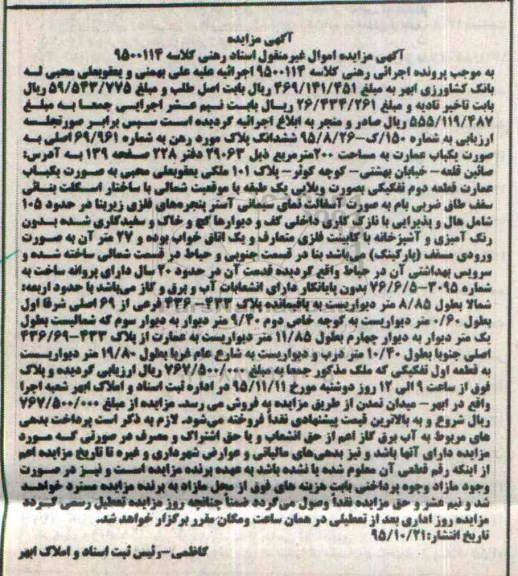 آگهی مزایده
آگهی مزایده اموال غیرمنقول اسناد رهنی کلاسه ۹۵۰۰۱۱۴
به موجب پرونده اجرائی رهنی کلاسه ۹۵۰۰۱۱۴ اجرائیه علیه علی بهمنی و یعقوبعلی محبی لـه
بانک کشاورزی ابهر به مبلغ ۴۶۹/۱۴۱/۴۵۱ ریال بابت اصل طلب و مبلغ ۵۹/۵۴۳/۷۷۵ ریال
بابت تاخیر تادیه و مبلغ ۲۶/۴۳۴/۲۶۱ ریـال بابـت نیـم عشـر اجرایـی جمعـا بـه مبلـغ
۵۵۵/۱۱۹/۴۸۷ ریال صادر و منجر به ابلاغ اجرائیه گردیده اسـت سـپس برابـر صورتجلسـه
ارزیابی به شماره ۱۵۰/ک-۹۵/۸/۲۶ ششدانگ پلاک موره رهن به شماره ۶۹/۹۶۱ اصلـی بـه
صورت یکباب عمارت به مساحت ۲۰۰مترمربع ذیل ۳۹۰۶۳ دفتر ۲۲۸ صـفحه ۱۳۹ بـه آدرس:
صائین قلعه- خیابان بهشتی- کوچه کوثر- پلاک ۱۰۱ ملکی یعقوبعلی محبی به صورت یکبـاب
عمارت قطعه دوم تفکیکی بصورت ویلایی یک طبقه با موقعیت شمالی با ساختار اسـکلت بنـائی
سقف طاق ضربی بام به صورت آسفالت نمای شمالی آستر پنجره‌های فلزی زیربنا در حدود ۱۰۵
شامل هال و پذیرایی با نازک کاری داخلی کف و دیوارها گچ و خاک و سفیدکاری شـده بـدون
رنگ آمیزی و آشپزخانه با کابینت فلزی متعارف و یک اتاق خواب بوده و ۲۷ متر آن به صـورت
ورودی مسقف (پارکینگ) می‌باشد بنا در قسمت جنوبی و حیاط در قسمت شمالی ساخته شـده و
سرویس بهداشتی آن در حیاط واقع گردیده قدمت آن در حدود ۲۰ سال دارای پروانه ساخت به
شماره ۳۰۹۵-۷۶/۶/۵ بدون پایانکار دارای انشعابات آب و برق و گاز می‌باشد با حدود اربعه:
شمالا بطول ۸/۸۵ متر دیواریست به باقیمانده پلاک ۴۳۳-۴۳۶ فرعی از ۶۹ اصلی شرقا اول
بطول ۰/۶۰ متر دیواریست به کوچه خاص دوم ۹/۴۰ متر دیوار به دیوار سوم که شمالیست بطول
یک متر دیوار به دیوار چهارم بطول ۱۱/۸۵ متر دیواریست به عمارت از پلاک ۴۳۳-۴۳۶/۶۹
اصلی جنوبا بطول ۱۰/۴۰ متر درب و دیواریست به شارع عام غربا بطول ۱۹/۸۰ متر دیواریسـت
به قطعه اول تفکیکی که ملک مذکور جمعا به مبلغ ۷۶۷/۵۰۰/۰۰۰ ریال ارزیابی گردیده و پلاک
فوق از ساعت ۹ الی ۱۲ روز دوشنبه مورخ ۹۵/۱۱/۱۱ در اداره ثبت اسناد و املاک ابهر شعبه اجرا
واقع در ابهر- میدان تمدن از طریق مزایده به فروش می رسد. مزایده از مبلغ ۷۶۷/۵۰۰/۰۰۰
ریال شروع و به بالاترین قیمت پیشنهادی نقداً فروخته می‌شود. لازم به ذکر است پرداخت بدهی
های مربوط به آب برق گاز اعم از حق انشعاب و یا حق اشتراک و مصرف در صورتی کـه مـورد
مزایده دارای آنها باشد و نیز بدهی‌های مالیاتی و عوارض شهرداری و غیره تا تاریخ مزایده اعم
از اینکه رقم قطعی آن معلوم شده یا نشده باشد به عهده برنده مزایده است و نیـز در صـورت
وجود مازاد وجوه پرداختی بابت هزینه های فوق از محل مازاد به برنده مزایده مسترد خواهـد
شد و نیم عشر و حق مزایده نقداً وصول می‌گردد ضمناً چنانچه روز مزایده تعطیل رسمی گـردد
مزایده روز اداری بعد از تعطیلی در همان ساعت ومکان مقرر برگزار خواهد شد.
تاریخ انتشار: ۹۵/۱۰/۲۱
کاظمی-رئیس ثبت اسناد و املاک ابهر